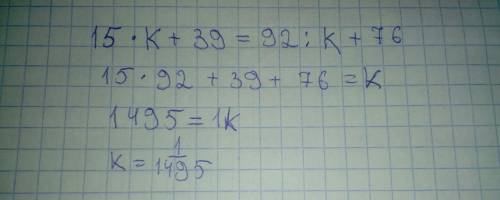 15 · K + 39 = 92 : K + 76
15 · 92 + 39 + 76 = K
1495 = 1K
K = 1/1495